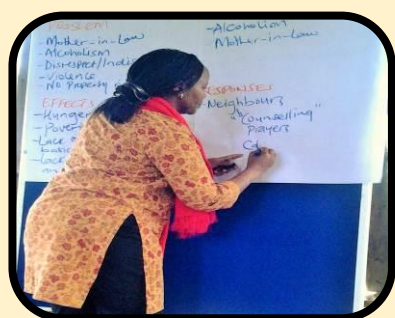 PROBLEM
- Mother-in-Law
- Alcoholism
- Disrespect/Indis
- Violence
- No Property
EFFECTS
- Hunger
- Pover
- Lack
- Lack
- Alcoholism
Mother-in-Law
RESPONSES
- Neighbours
"Counselling"
Prayers